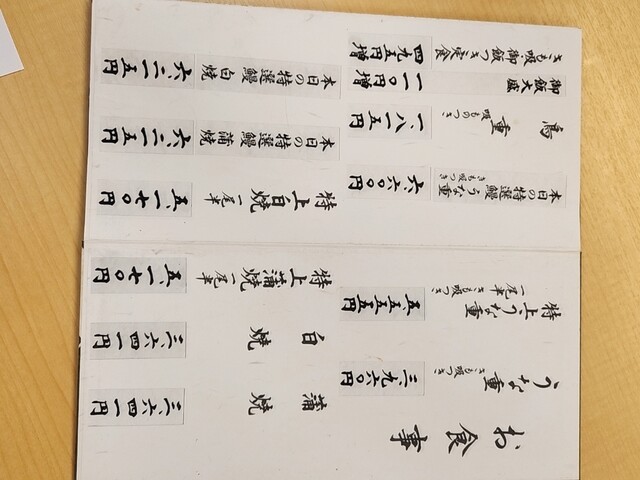 お食事
うな重
きも吸つき
三、九六〇円
特上うな重
一尾半 きも吸つき
五、五五五円
蒲焼 三、六四一円
白焼 三、六四一円
特上蒲焼 一尾半 五、一七〇円
本日の特選鰻うな重
きも吸つき
六、六〇〇円
鳥重
吸ものつき
一、八一五円
御飯大盛 一一〇円増
きも吸御飯つき定食 四九五円増
特上白焼 一尾半 五、一七〇円
本日の特選鰻蒲焼 六、二一五円
本日の特選鰻白焼 六、二一五円